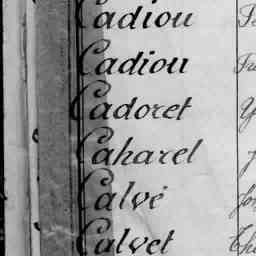 Cadiou
Cadiou
Cadoret
Caharel
Calvé
Calvet